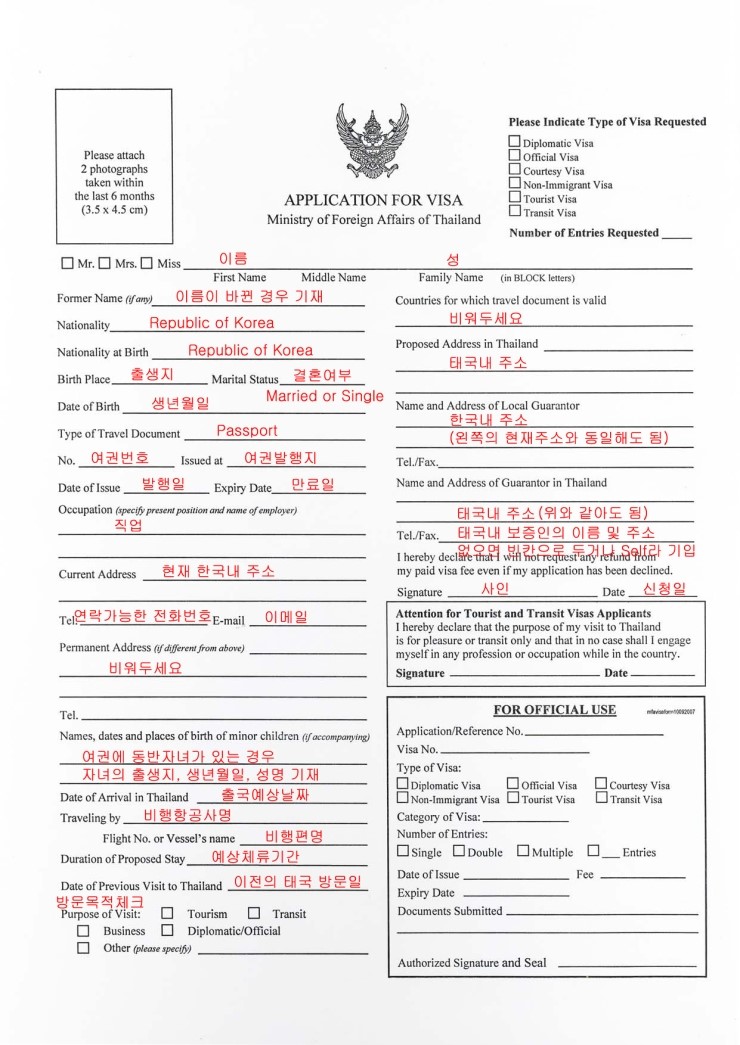 Please attach
2 photographs
taken within
the last 6 months
(3.5 x 4.5 cm)
APPLICATION FOR VISA
Ministry of Foreign Affairs of Thailand
Please Indicate Type of Visa Requested
Diplomatic Visa
Official Visa
Courtesy Visa
Non-Immigrant Visa
Tourist Visa
Transit Visa
Number of Entries Requested
Mr. Mrs. Miss 이름 성
First Name Middle Name Family Name (in BLOCK letters)
Former Name (if any) 이름이 바뀐 경우 기재
Nationality Republic of Korea
Nationality at Birth Republic of Korea
Birth Place 출생지 Marital Status 결혼여부
Married or Single
Date of Birth 생년월일
Type of Travel Document Passport
No. 여권번호 Issued at 여권발행지
Date of Issue 발행일 Expiry Date 만료일
Occupation (specify present position and name of employer)
직업
Current Address 현재 한국내 주소
Tel. 연락가능한 전화번호 E-mail 이메일
Permanent Address (if different from above)
비워두세요
Tel.
Names, dates and places of birth of minor children (if accompanying)
여권에 동반자녀가 있는 경우
자녀의 출생지, 생년월일, 성명 기재
Date of Arrival in Thailand 출국예상날짜
Traveling by 비행항공사명
Flight No. or Vessel's name 비행편명
Duration of Proposed Stay 예상체류기간
Date of Previous Visit to Thailand 이전의 태국 방문일
방문목적체크
Purpose of Visit: Tourism Transit
Business Diplomatic/Official
Other (please specify)
Countries for which travel document is valid
비워두세요
Proposed Address in Thailand
태국내 주소
Name and Address of Local Guarantor
한국내 주소
(왼쪽의 현재주소와 동일해도 됨)
Tel./Fax.
Name and Address of Guarantor in Thailand
태국내 주소(위와 같아도 됨)
Tel./Fax. 태국내 보증인의 이름 및 주소
없으면 빈칸으로 두거나 Self라 기입
I hereby declare that I will not request any refund from
my paid visa fee even if my application has been declined.
Signature 사인 Date 신청일
Attention for Tourist and Transit Visas Applicants
I hereby declare that the purpose of my visit to Thailand
is for pleasure or transit only and that in no case shall I engage
myself in any profession or occupation while in the country.
Signature Date
FOR OFFICIAL USE mfavisaform10092007
Application/Reference No.
Visa No.
Type of Visa:
Diplomatic Visa Official Visa Courtesy Visa
Non-Immigrant Visa Tourist Visa Transit Visa
Category of Visa:
Number of Entries:
Single Double Multiple Entries
Date of Issue Fee
Expiry Date
Documents Submitted
Authorized Signature and Seal